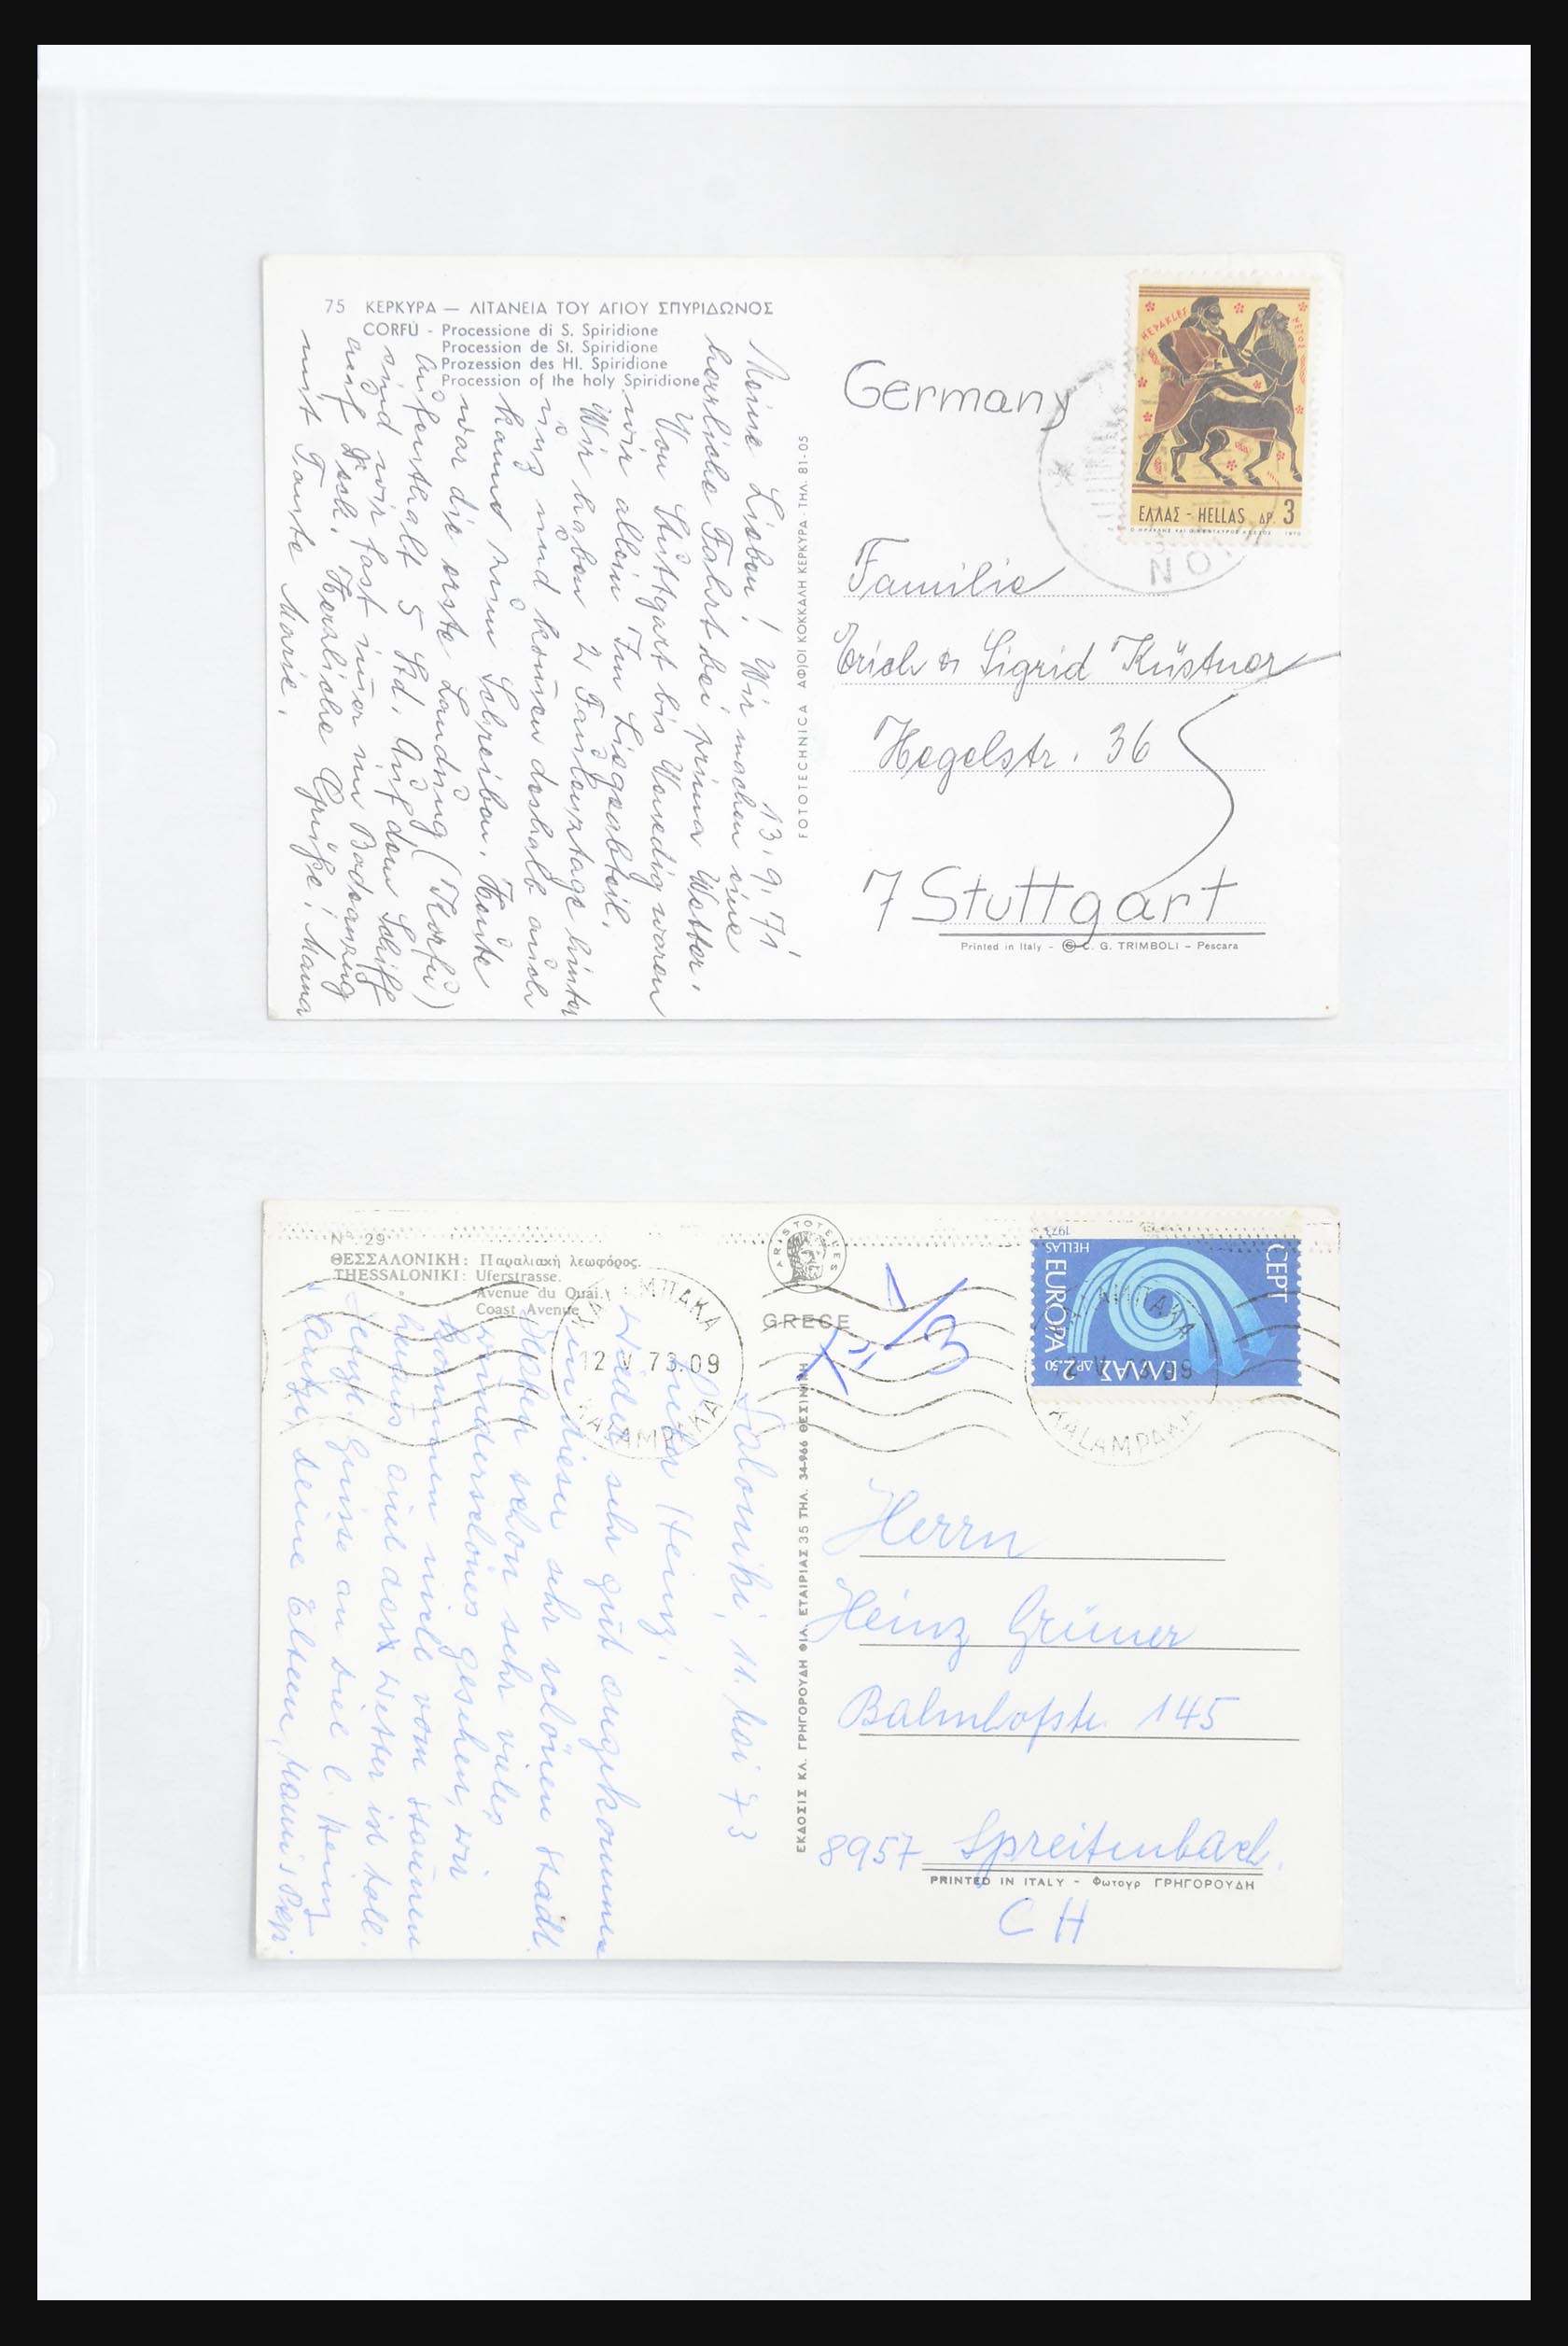 75 ΚΕΡΚΥΡΑ — ΛΙΤΑΝΕΙΑ ΤΟΥ ΑΓΙΟΥ ΣΠΥΡΙΔΩΝΟΣ
CORFÙ - Processione di S. Spiridione
Procession de St. Spiridione
Prozession des Hl. Spiridione
Procession of the holy Spiridione
13.9.71
Meine Lieben! Wir machen eine
herrliche Fahrt bei prima Wetter.
Von Stuttgart bis Venedig waren
wir allein im Liegeabteil.
Wir haben 2 Faulenztage hinter
uns und kommen deshalb auch
kaum zum Schreiben. Heute
war die erste Landung (Korfu)
Aufenthalt 5 Std. Auf dem Schiff
sind wir fast immer im Badeanzug
auf Deck. Herzliche Grüße! Mama
mit Tante Marie.
FOTOTECHNICA ΑΦΙΟΙ ΚΟΚΚΑΛΗ ΚΕΡΚΥΡΑ - ΤΗΛ. 81-05
Germany
ΗΕΡΑΚLΕΣ
ΝΕΤΟΣ
ΕΛΛΑΣ - HELLAS ΔΡ. 3
1970
Familie
Erich & Sigrid Küstner
Hegelstr. 36
7 Stuttgart
Printed in Italy - © C. G. TRIMBOLI - Pescara
Nº 29
ΘΕΣΣΑΛΟΝΙΚΗ: Παραλιακή λεωφόρος.
THESSALONIKI: Uferstrasse.
Avenue du Quai.
Coast Avenue
ARISTOTELES
GRECE
ΚΑΛΑΜΠΑΚΑ
12 V 73.09
KALAMPAKA
1973
HELLAS
EUROPA
CEPT
ΕΛΛΑΣ ΔΡ 2.50
ΚΑΛΑΜΠΑΚΑ
12 V 73.09
KALAMPAKA
Saloniki, 11. Mai 73
Lieber Heinz!
Wieder sehr gut angekommen
in dieser sehr schönen Stadt.
Haben schon sehr vieles
wunderschönes gesehen, wir
kommen nicht vom staunen
heraus und das Wetter ist toll.
Grüsse an Dich l. Heinz
Deine Eltern, Mami & Papi.
ΕΚΔΟΣΙΣ ΚΛ. ΓΡΗΓΟΡΟΥΔΗ ΦΙΛ. ΕΤΑΙΡΙΑΣ 35 ΤΗΛ. 34-966 ΘΕΣ/ΝΙΚΗ
Herrn
Heinz Grüner
Bahnhofstr. 145
8957 Spreitenbach.
PRINTED IN ITALY - Φωτογρ ΓΡΗΓΟΡΟΥΔΗ
CH